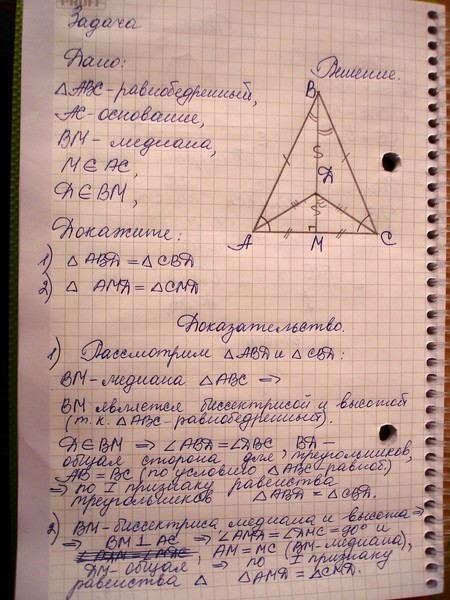 PROFF
Задача
Дано:
△ABC - равнобедренный,
AC - основание,
BM - медиана,
M∈AC,
D∈BM,
Докажите:
1) △ ABD = △ CBD
2) △ AMD = △ CMD
Решение.
B
D
A
M
C
Доказательство.
1) Рассмотрим △ABD и △CBD:
BM - медиана △ABC ⇒
BM является биссектрисой и высотой
(т.к. △ABC - равнобедренный).
D∈BM ⇒ ∠ABD = ∠DBC BD -
общая сторона для треугольников,
AB = BC (по условию △ABC - равноб.)
⇒ по I признаку равенства
треугольников △ABD = △CBD.
2) BM - биссектриса медиана и высота ⇒
⇒ BM ⊥ AC ⇒ ∠AMD = ∠DMC = 90° и
AM = MC (BM - медиана),
DM - общая ⇒ по I признаку
равенства △ △AMD = △CMD.